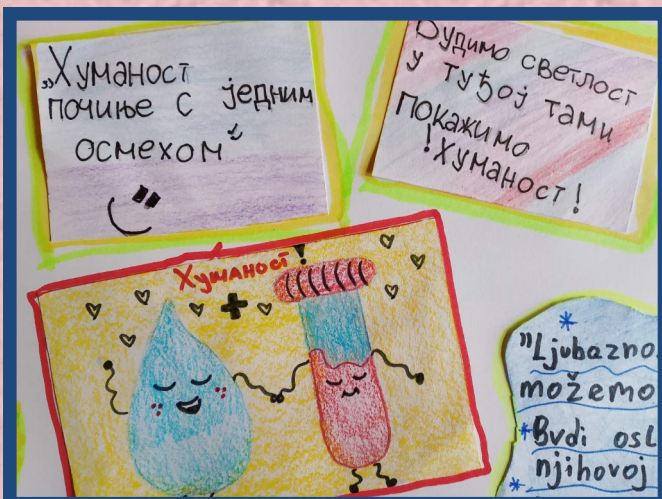 „Хуманост
почиње с једним
осмехом“
Будимо светлост
у туђој тами
Покажимо
!Хуманост!
Хуманост!
"Ljubazno
možemo
Budi osl
njihovoj